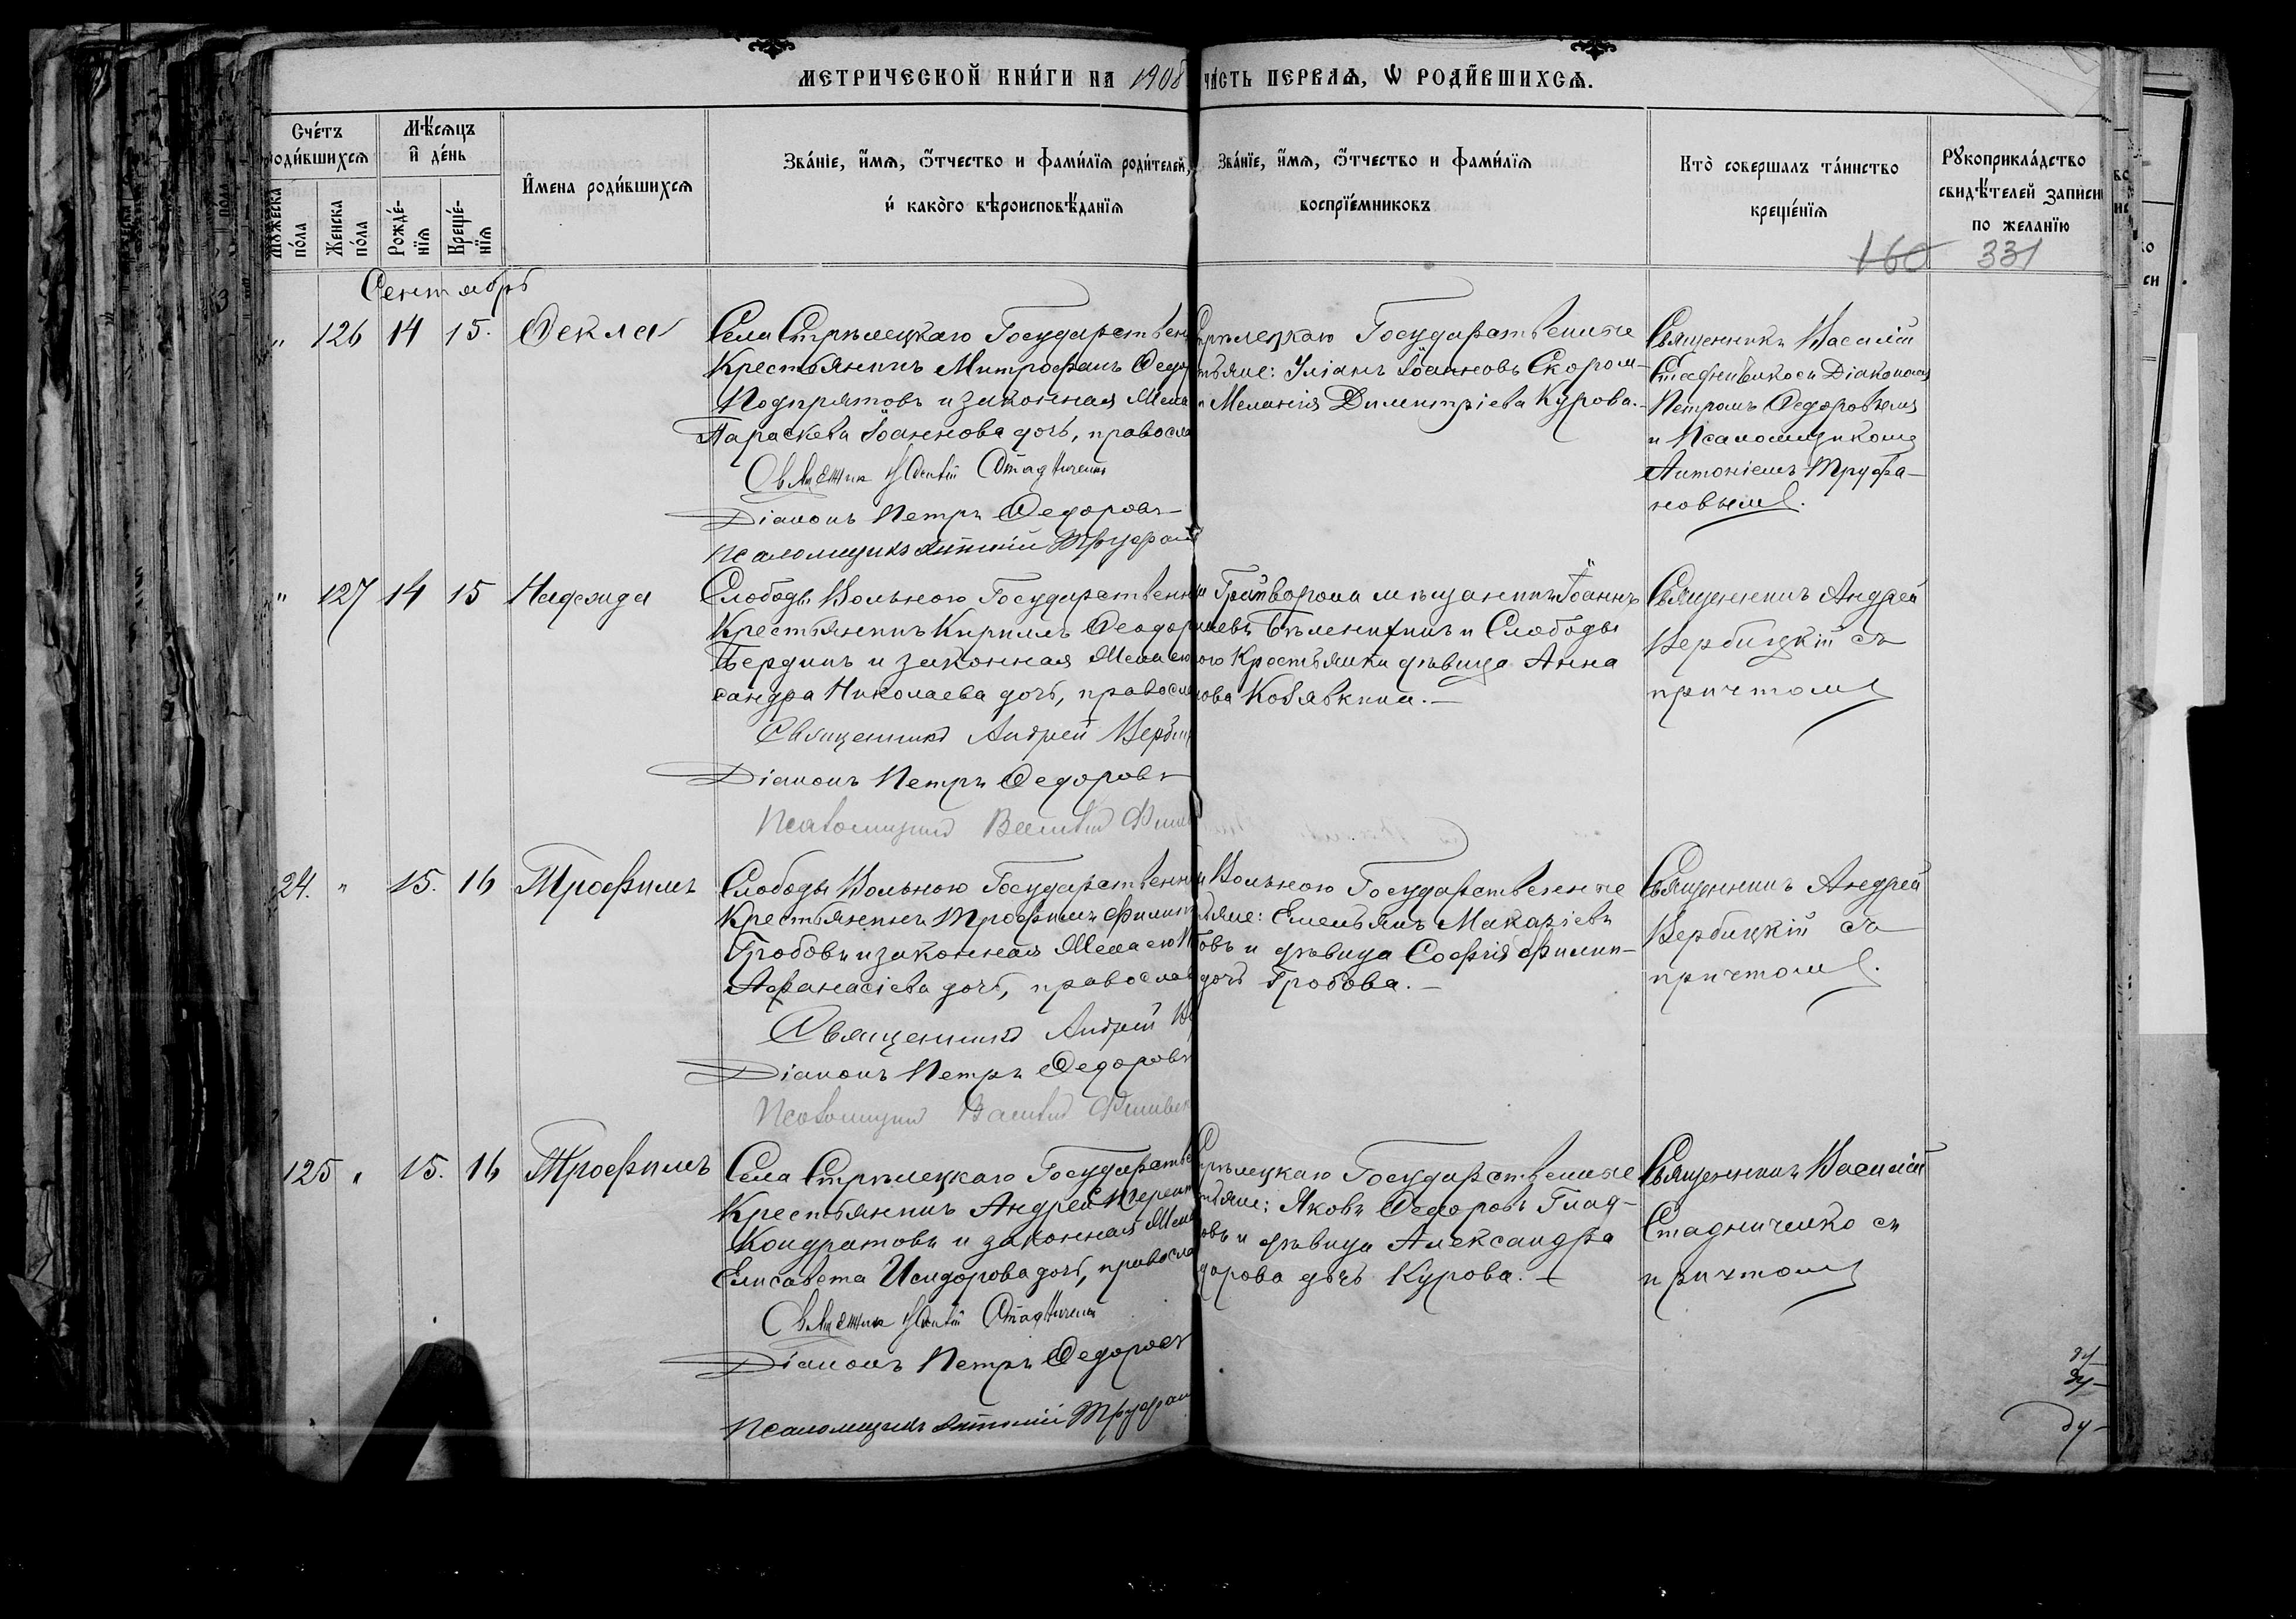 МЕТРИЧЕСКОЙ КНИ́ГИ НА 1908 ЧА́СТЬ ПЕРВАѦ, Ѡ РОДИ́ВШИХСѦ.
Сче́тъ родившихсѧ
Мѣ́сѧцъ и де́нь
И҆мена роди́вшихсѧ
Зва́нїе, и҆мѧ, ѻ҆́тчество и фами́лїѧ роди́телей,
и како́го вѣроисповѣ́данїѧ
Зва́нїе, и҆мѧ, ѻ҆́тчество и фами́лїѧ
воспрїе́мниковъ
Кто̀ совершалъ та́инство
креще́нїѧ
Рꙋкоприкла́дство
свидѣ́телей записи
по желанїю
Мꙋжеска по́ла
Женска по́ла
Рожде́-нїѧ
Креще́-нїѧ
160 331
Сентябрь
" 126 14 15. Фекла
Села Стрѣлецкаго Государствен
Крестьянинъ Митрофанъ Федор
Подпрятовъ и законная Жена
Параскева Іоаннова дочь, правосла
Священник Василій Стадниченко
Діаконъ Петръ Федоровъ
Псаломщикъ Антоній Труфан
Стрѣлецкаго Государственные
тьяне: Уліанъ Іоанновъ Скором-
и Меланія Димитріева Курова.-
Священникъ Василій
Стадниченко съ Діакономъ
Петромъ Федоровымъ
и Псаломщикомъ
Антоніемъ Труфа-
новымъ.
" 127 14 15 Надежда
Слободы Вольного Государственн
Крестьянинъ Кириллъ Феодор
Бердинъ и законная Жена ег
сандра Николаева дочь, правосла
Священникъ Андрей Верби
Діаконъ Петръ Федоровъ
Псаломщикъ Василій
и Грайворона мѣщанинъ Іоаннъ
и Слободы
ого Крестьянка дѣвица Анна
ова Кобзявкина.-
Священникъ Андрей
Вербицкій съ
причтомъ
24. " 15. 16 Трофимъ
Слободы Вольного Государственн
Крестьянинъ Трофимъ Филип
Гробовъ и законная Жена его
Афанасіева дочь, православ
Священникъ Андрей В
Діаконъ Петръ Федоровъ
Псаломщикъ Василій
и Вольного Государственные
тьяне: Емельянъ Макаріевъ
овъ и дѣвица Софія Филип-
дочь Гробова.-
Священникъ Андрей
Вербицкій съ
причтомъ.
125 " 15. 16 Трофимъ
Села Стрѣлецкаго Государстве
Крестьянинъ Андрей Терент
Кондратовъ и законная Жена
Елисавета Исидорова дочь, правосла
Священник Василій Стадниченко
Діаконъ Петръ Федоровъ
Псаломщикъ Антоній Труфан
Стрѣлецкаго Государственные
тьяне: Яковъ Федоровъ Глад-
овъ и дѣвица Александра
дорова дочь Курова.-
Священникъ Василій
Стадниченко съ
причтомъ